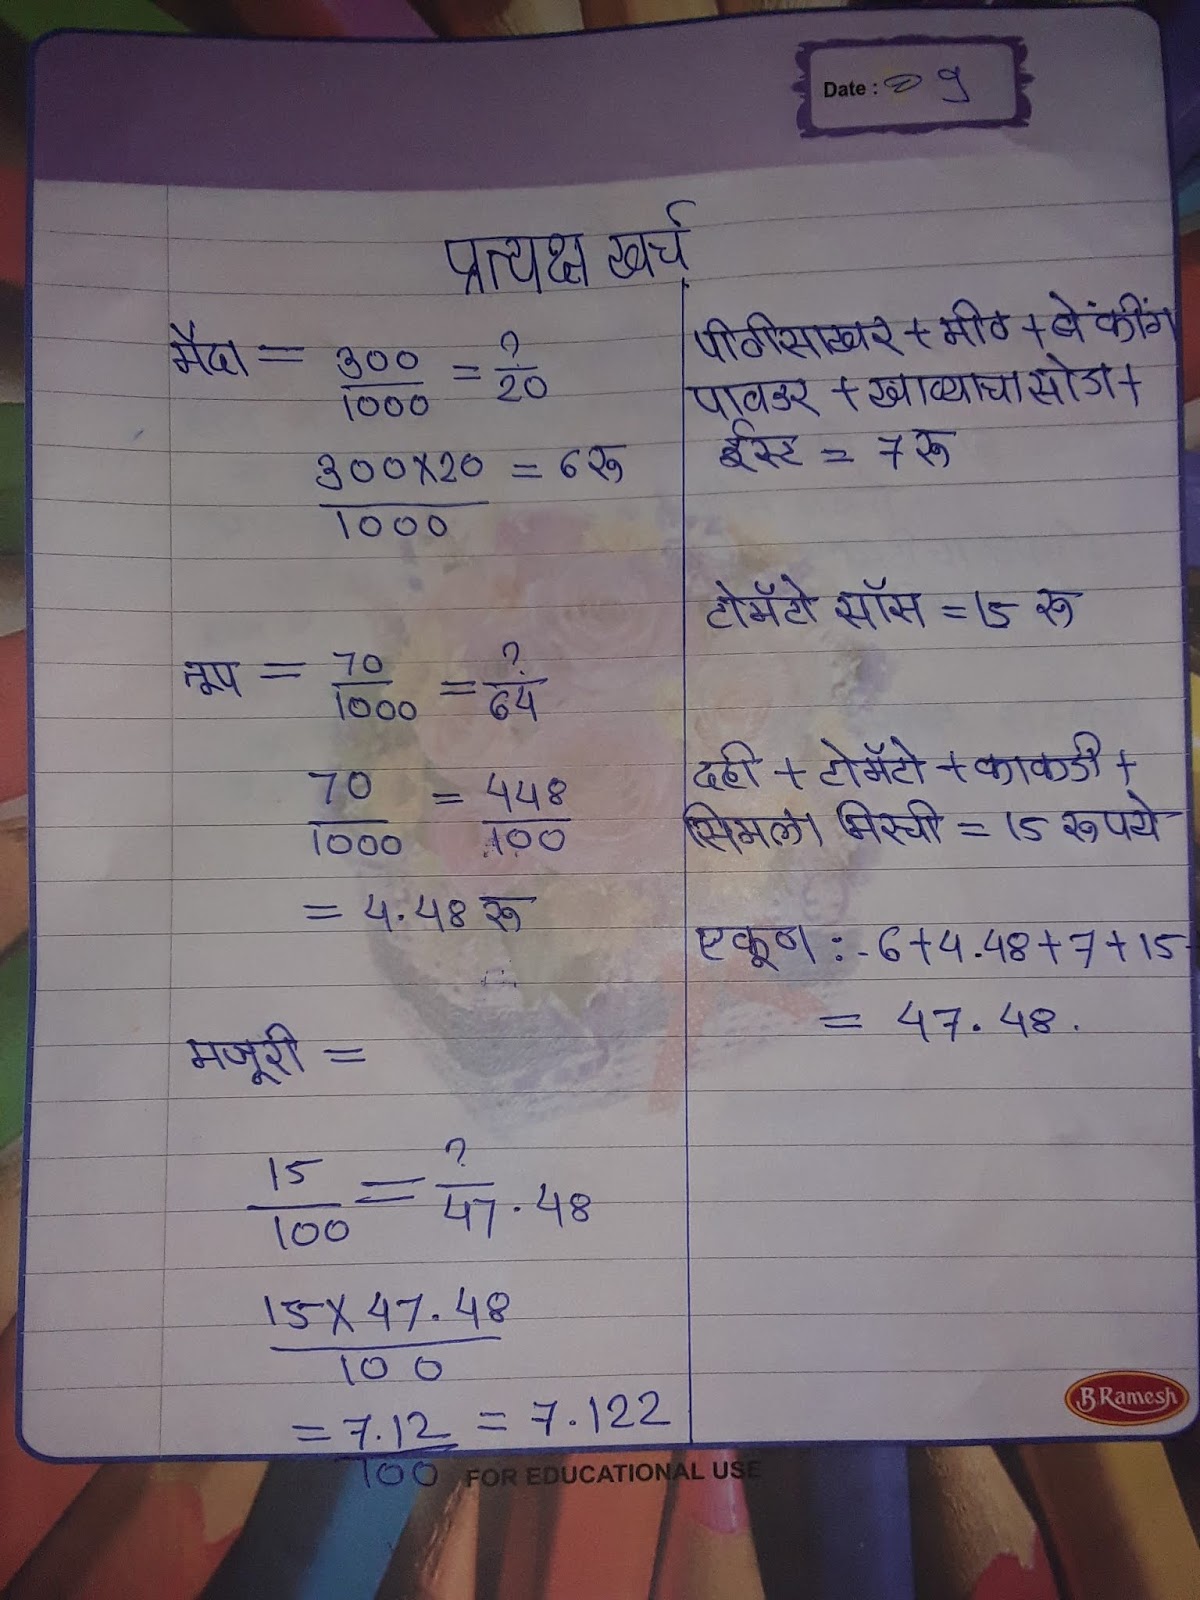 Date : 9
प्रत्यक्ष खर्च
मैदा = 300/1000 = ?/20
300x20/1000 = 6रू
तूप = 70/1000 = ?/64
70/1000 = 448/100
= 4.48 रू
मजूरी =
15/100 = ?/47.48
15x47.48/100
= 7.12/100 = 7.122
पीठीसाखर + मीठ + बेकींग
पावडर + खाव्याचा सोडा +
ईस्ट = 7 रू
टोमॅटो सॉस = 15 रू
दही + टोमॅटो + काकडी +
सिमला मिरची = 15 रूपये
एकूण :- 6+4.48+7+15
= 47.48.
B Ramesh
FOR EDUCATIONAL USE